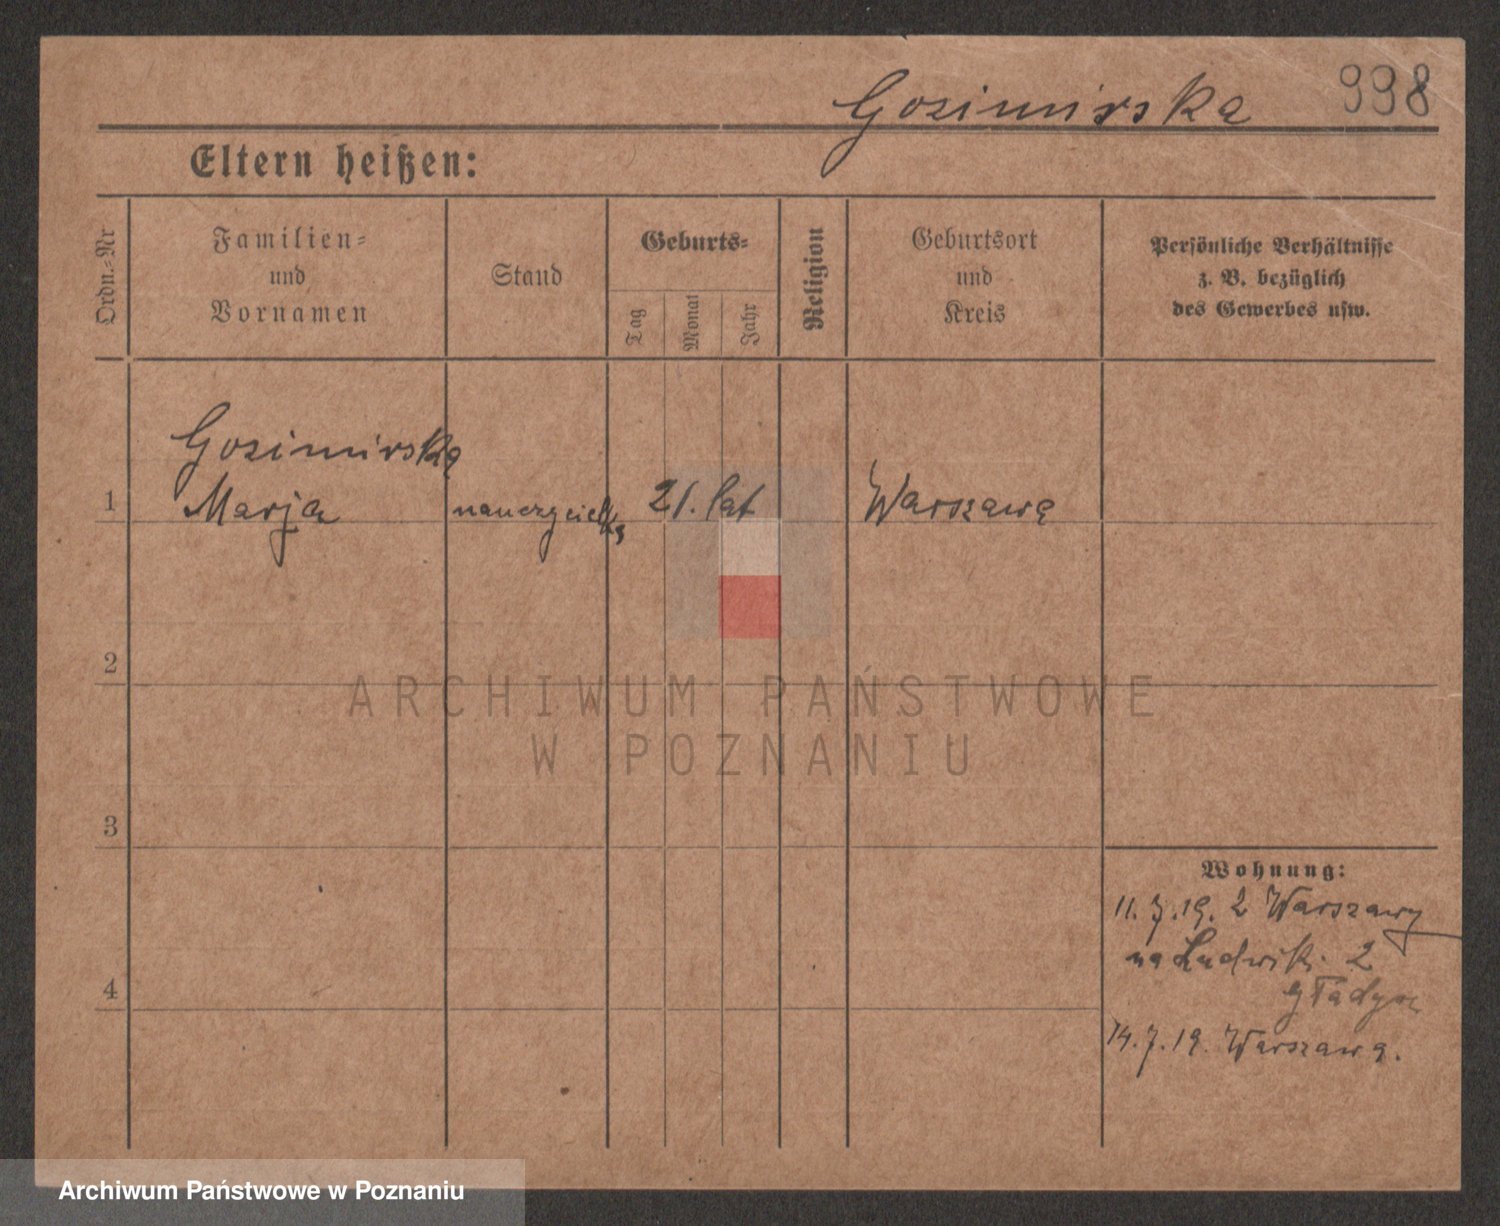 Gosimirska 998
Eltern heißen:
Ordn.-Nr
Familien-
und
Vornamen
Stand
Geburts-
Tag
Monat
Jahr
Religion
Geburtsort
und
Kreis
Persönliche Verhältnisse
z. B. bezüglich
des Gewerbes usw.
Gosimirska
1 Marja nauczycielka 21. lat Warszawa
2
ARCHIWUM PAŃSTWOWE
W POZNANIU
3
Wohnung:
11. 7. 19. z Warszawy
na Ludwiki 2
4
14. 7. 19. Warszawa.
Archiwum Państwowe w Poznaniu